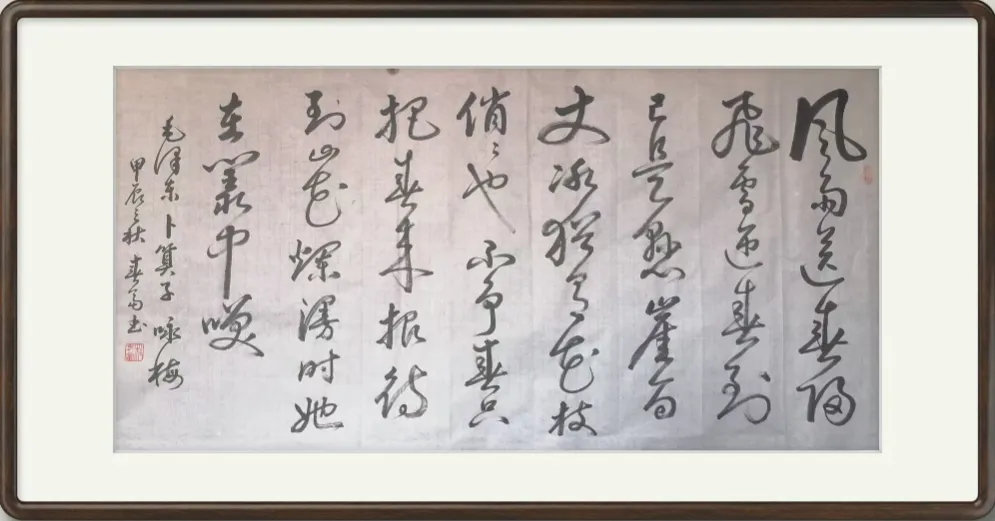 风雨送春归
飛雪迎春到
已是懸崖百
丈冰猶有花枝
俏〻也不争春只
把春来报待
到山花爛漫时她
在叢中咲
毛泽东卜算子咏梅
甲辰之秋春 书